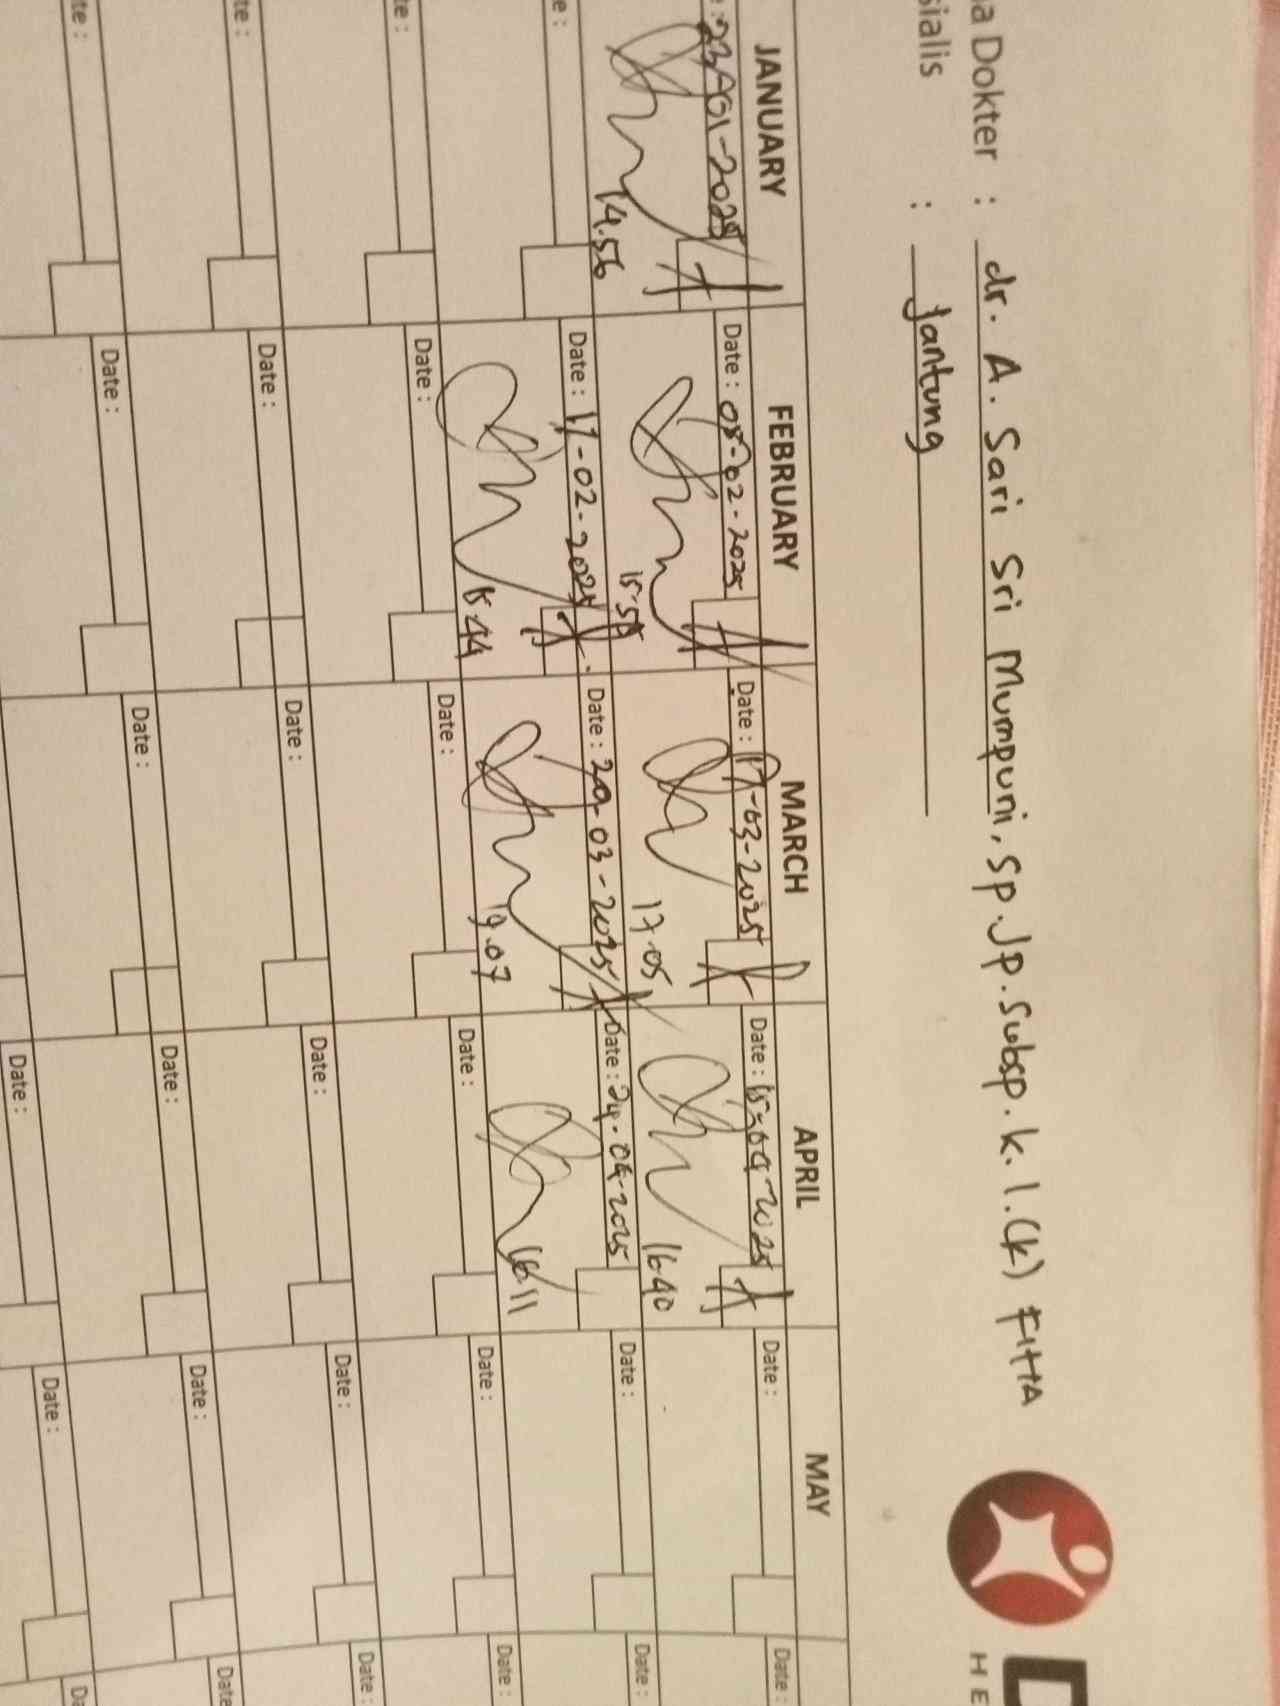 a Dokter : dr. A. Sari Sri Mumpuni, Sp.Jp.Subsp.k.I.(k) FIHA
sialis : Jantung
HE
JANUARY FEBRUARY MARCH APRIL MAY
: 23-01-2025 Date : 08-02-2025 Date : 17-03-2025 Date : 15-04-2025 Date : Date :
14.56 15.58 17.05 16.40
e : Date : 17-02-2025 Date : 29-03-2025 Date : 24-04-2025 Date : Date :
15.44 19.07 16.11
te : Date : Date : Date : Date : Date :
te : Date : Date : Date : Date : Date :
te : Date : Date : Date : Date : Date
Date : Date : Da